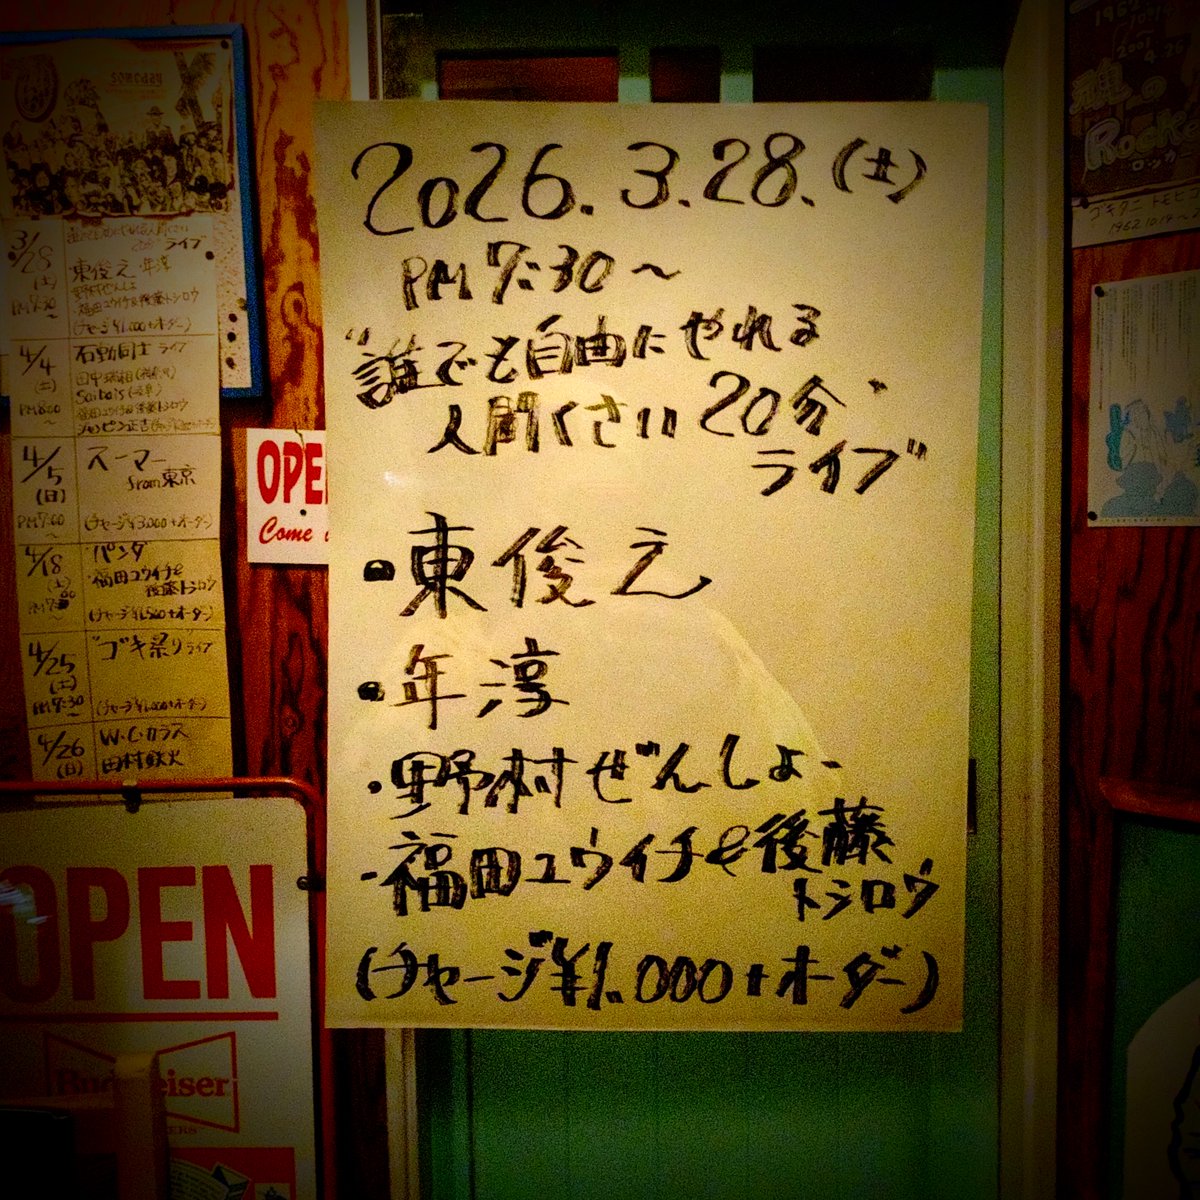 2026.3.28.(土)
PM7:30〜
"誰でも自由にやれる
人間くさい20分
ライブ"
・東俊之
・年淳
・野村ぜんしょー
・福田ユウイチ&後藤
トシロウ
(チャージ¥1.000+オーダー)
someday
3/28
(土)
PM7:30
〜
ライブ
東俊之 年淳
野村ぜんしょ
福田ユウイチ&後藤トシロウ
(チャージ¥1,000+オーダー)
4/4
(土)
PM8:00
〜
ライブ
福田ユウイチ&後藤トシロウ
4/5
(日)
PM7:00
〜
スーマー
from東京
(チャージ¥3,000+オーダー)
4/18
(土)
〜
"パンダ
福田ユウイチ&
後藤トシロウ
(チャージ¥1,500+オーダー)
4/25
(土)
PM7:30
〜
"ゴキ祭り"ライブ
(チャージ¥1,000+オーダー)
4/26
(日)
W.C.カラス
田村鉄火
OPE
Come
OPEN
Budweiser
1962
10/19
2007
4.26
魂の
Rocker
ロッカー
ゴキタニトモヒ
1962.10.19〜